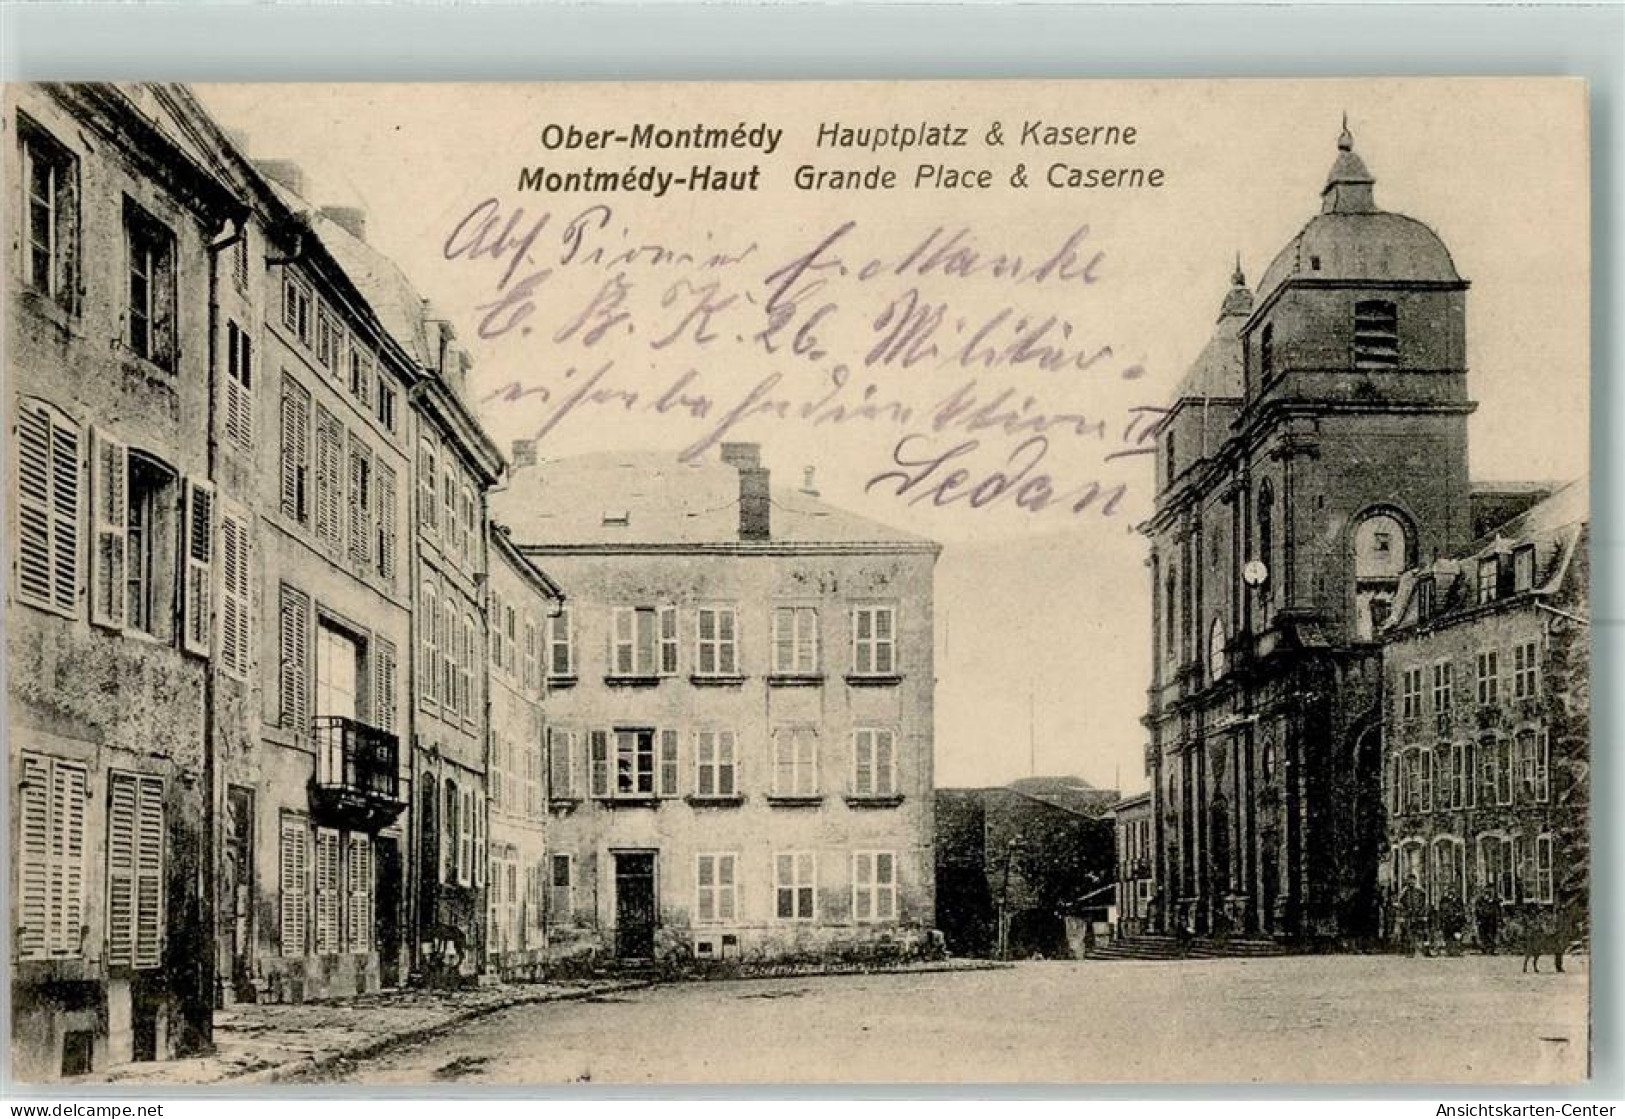 Ober-Montmédy Hauptplatz & Kaserne
Montmédy-Haut Grande Place & Caserne
Abs. Pionier F. Manke
E. B. K. 26. Militär-
eisenbahndirektion II
Sedan
www.ansichtskarten-center.de
Ansichtskarten-Center